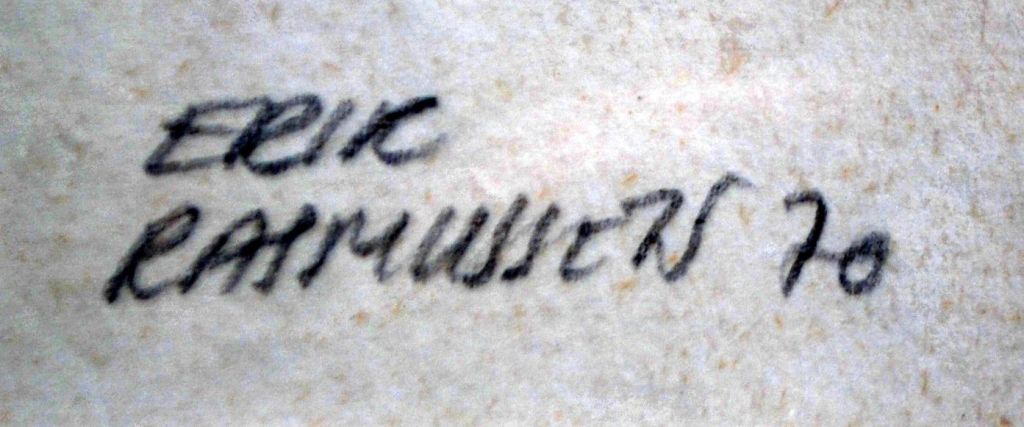 ERIK
RASMUSSEN 70